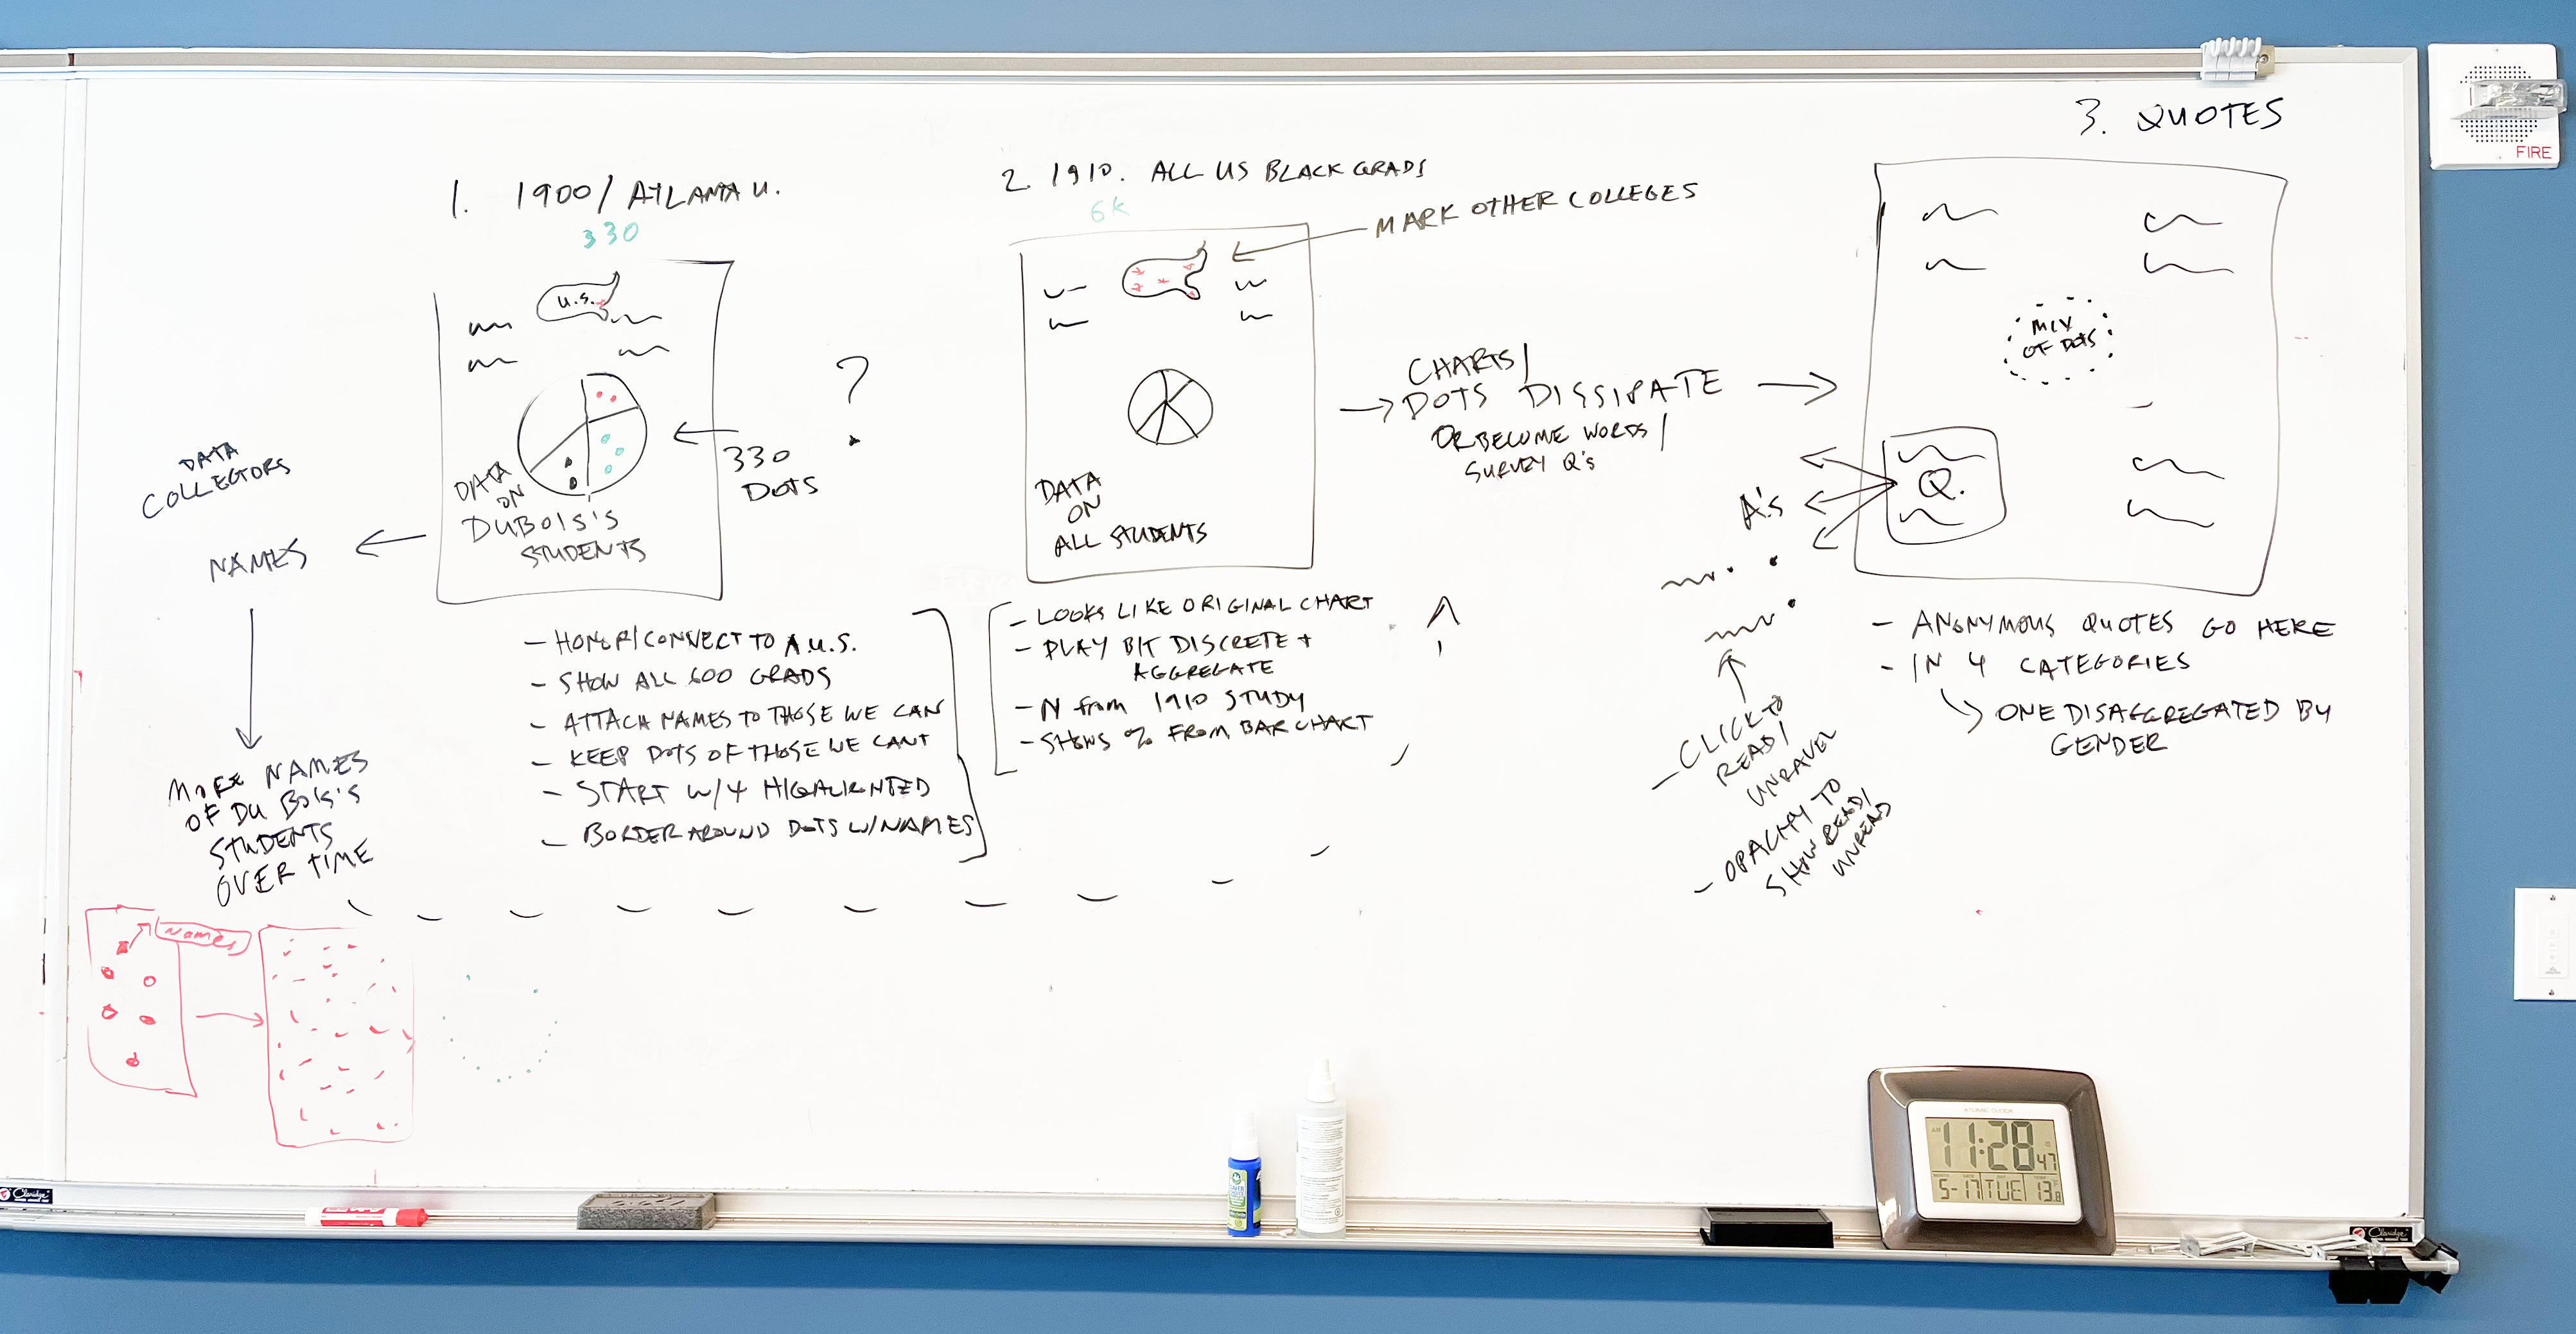 3. QUOTES
FIRE
1. 1900/ATLANTA U.
330
U.S.
DATA
ON
DUBOIS'S
STUDENTS
330
DOTS
?
DATA
COLLECTORS
NAMES
MORE NAMES
OF DU BOIS'S
STUDENTS
OVER TIME
Names
- HONOR/CONNECT TO A.U.S.
- SHOW ALL 600 GRADS
- ATTACH NAMES TO THOSE WE CAN
- KEEP DOTS OF THOSE WE CANT
- START W/4 HIGHLIGHTED
- BORDER AROUND DOTS W/NAMES
2. 1910. ALL US BLACK GRADS
6K
MARK OTHER COLLEGES
DATA
ON
ALL STUDENTS
- LOOKS LIKE ORIGINAL CHART
- PLAY B/T DISCRETE +
AGGREGATE
- N from 1910 STUDY
- SHOWS % FROM BAR CHART
CHARTS/
DOTS DISSIPATE
OR BECOME WORDS/
SURVEY Q's
MIX
OF DOTS
Q.
A's
- CLICK TO
READ/
UNRAVEL
- OPACITY TO
SHOW READ/
UNREAD
- ANONYMOUS QUOTES GO HERE
- IN 4 CATEGORIES
ONE DISAGGREGATED BY
GENDER
ATOMIC CLOCK
AM 11:28 47
5-17 TUE 13.8
Claridge
Claridge